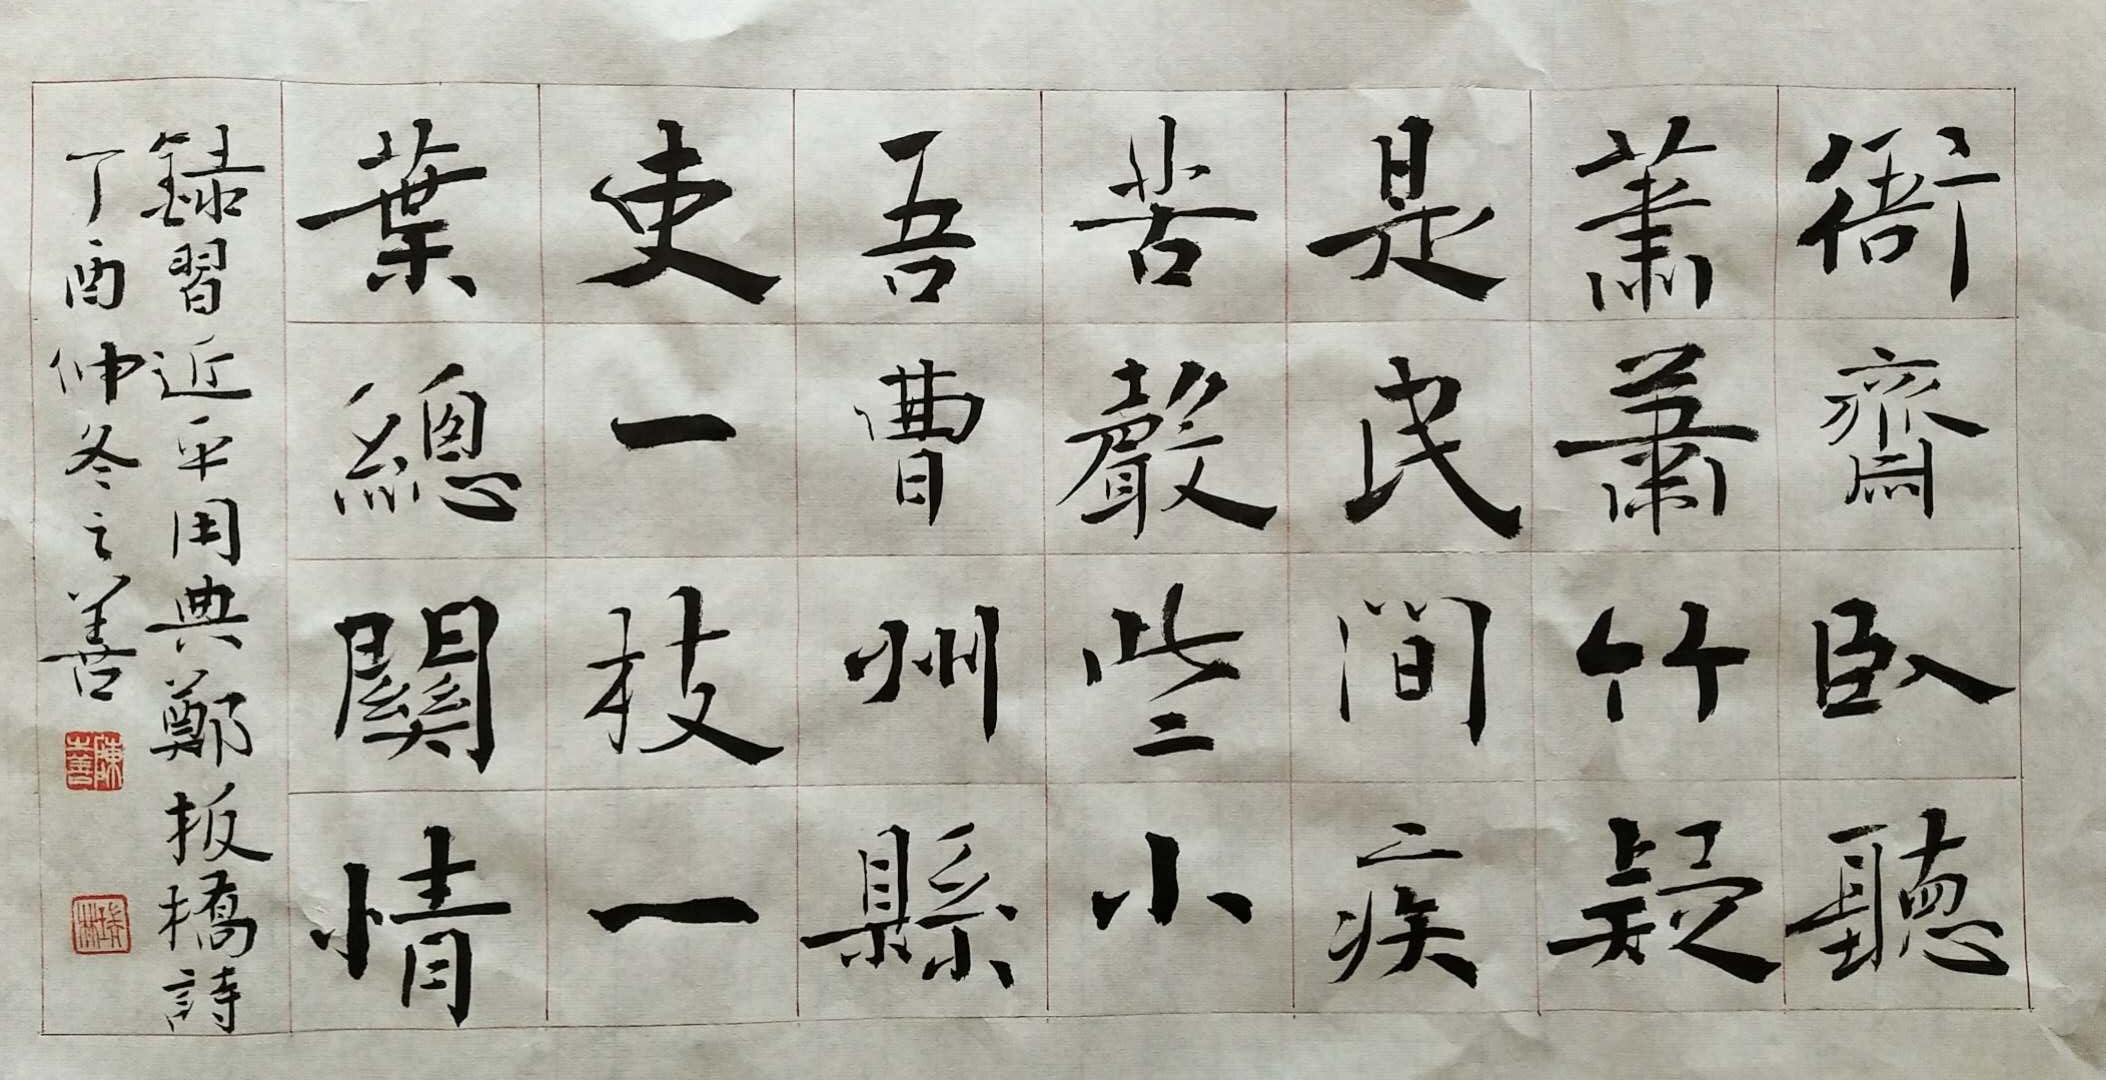 衙齋卧聽
蕭蕭竹疑
是民間疾
苦聲些小
吾曹州縣
吏一枝一
葉總關情
録習近平用典鄭板橋詩
丁酉仲冬之善
陳之善